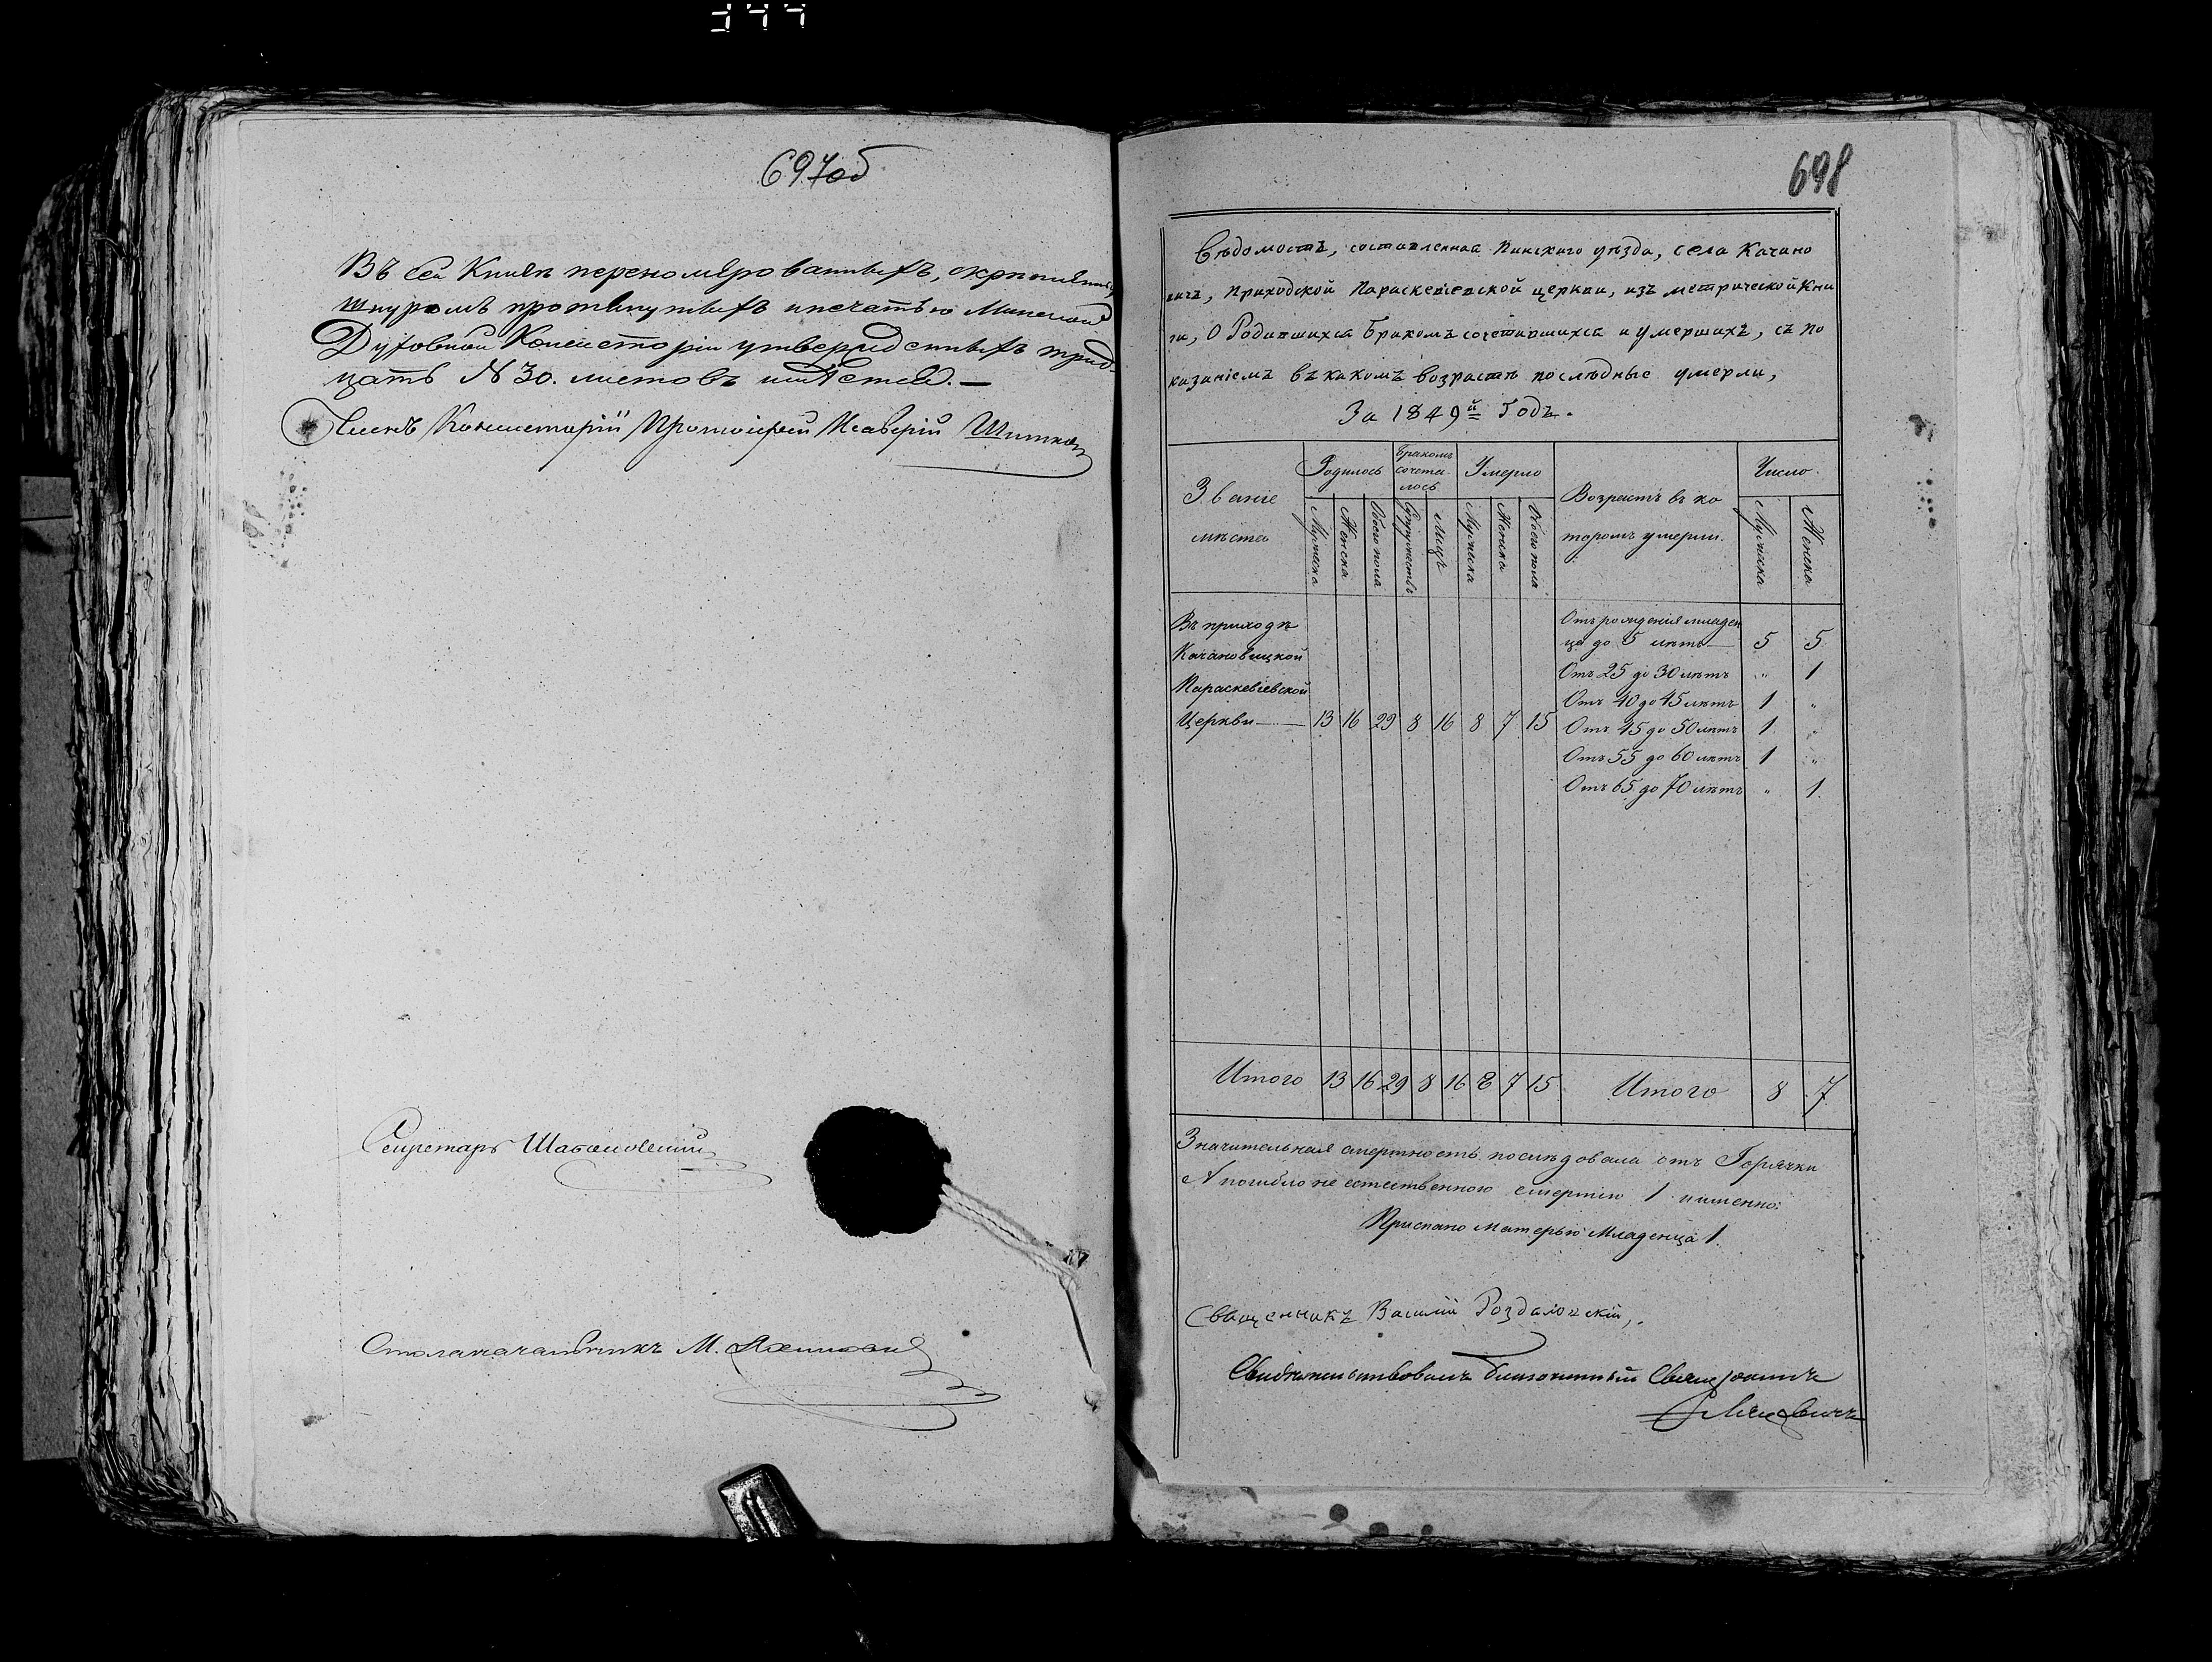 697об
Въ сей Книгѣ перенумѣрованныхъ, скрѣпленныхъ
шнуромъ протянутыхъ и печатью Минской
Духовной Консисторіи утвержденныхъ трид-
цать № 30. листовъ имѣется. —
Членъ Консисторіи Протоіерей
Секретарь
Столоначальникъ М.
698
Вѣдомость, составленная Пинскаго уѣзда, села Качано
вичъ, приходской Параскевіевской церкви, изъ метрической Кни
ги, О Родившихся Бракомъ сочетавшихся и умершихъ, съ по
казаніемъ въ какомъ возрастѣ послѣдные умерли,
За 1849й Годъ.
Званіе мѣста
Родилось
Бракомъ сочета-лось
Умерло
Возрастъ въ ко торомъ умерли.
Число
Мужеска Женска Обоего пола Супружествъ Лицъ Мужеска Женска Обоего пола Мужеска Женска
Въ приходѣ
Качановицкой
Параскевіевской
Церкви — 13 16 29 8 16 8 7 15
Отъ рожденія младен
ца до 5 лѣтъ — 5 5
Отъ 25 до 30 лѣтъ " 1
Отъ 40 до 45 лѣтъ 1 "
Отъ 45 до 50 лѣтъ 1 "
Отъ 55 до 60 лѣтъ 1 "
Отъ 65 до 70 лѣтъ " 1.
Итого 13 16 29 8 16 8 7 15 Итого 8 7
Значительная смертность послѣдовала отъ Горячки
А погибло не естественною смертію 1 именно:
Приспано матерью Младенца 1.
Священникъ Василій
Свидѣтельствовалъ благочинный Свящ. Іоаннъ